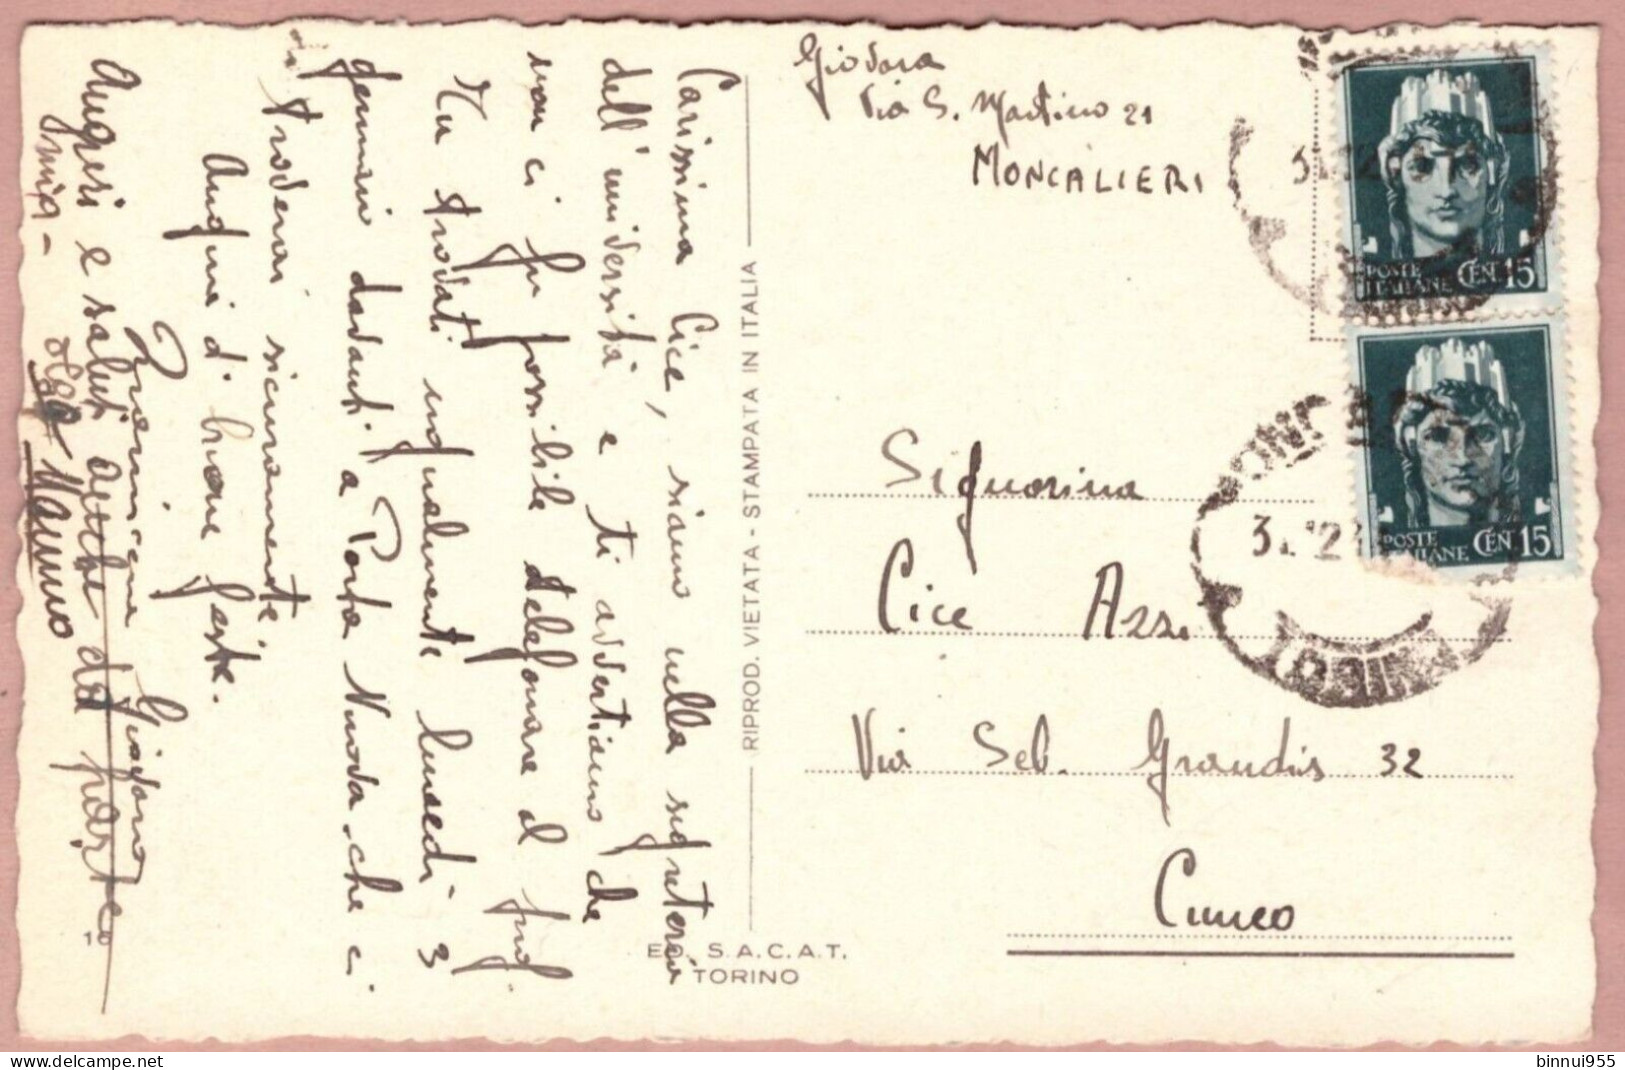 Carissima Cice, siamo nella segreteria
dell'università e ti avvertiamo che
non ci fu possibile telefonare al prof
Tu trovati ugualmente lunedì 3
gennaio davanti a Porta Nuova che ci
troverai sicuramente.
Auguri di buone feste.
Giovanna
Auguri e saluti anche da parte
mia -
Via S. Martino 21
MONCALIERI
Signorina
Cice Azzi
Via Seb. Grandis 32
Cuneo
RIPROD. VIETATA - STAMPATA IN ITALIA
ED. S.A.C.A.T.
TORINO
16
POSTE ITALIANE CEN. 15
POSTE ITALIANE CEN. 15
delcampe.net
binnui955